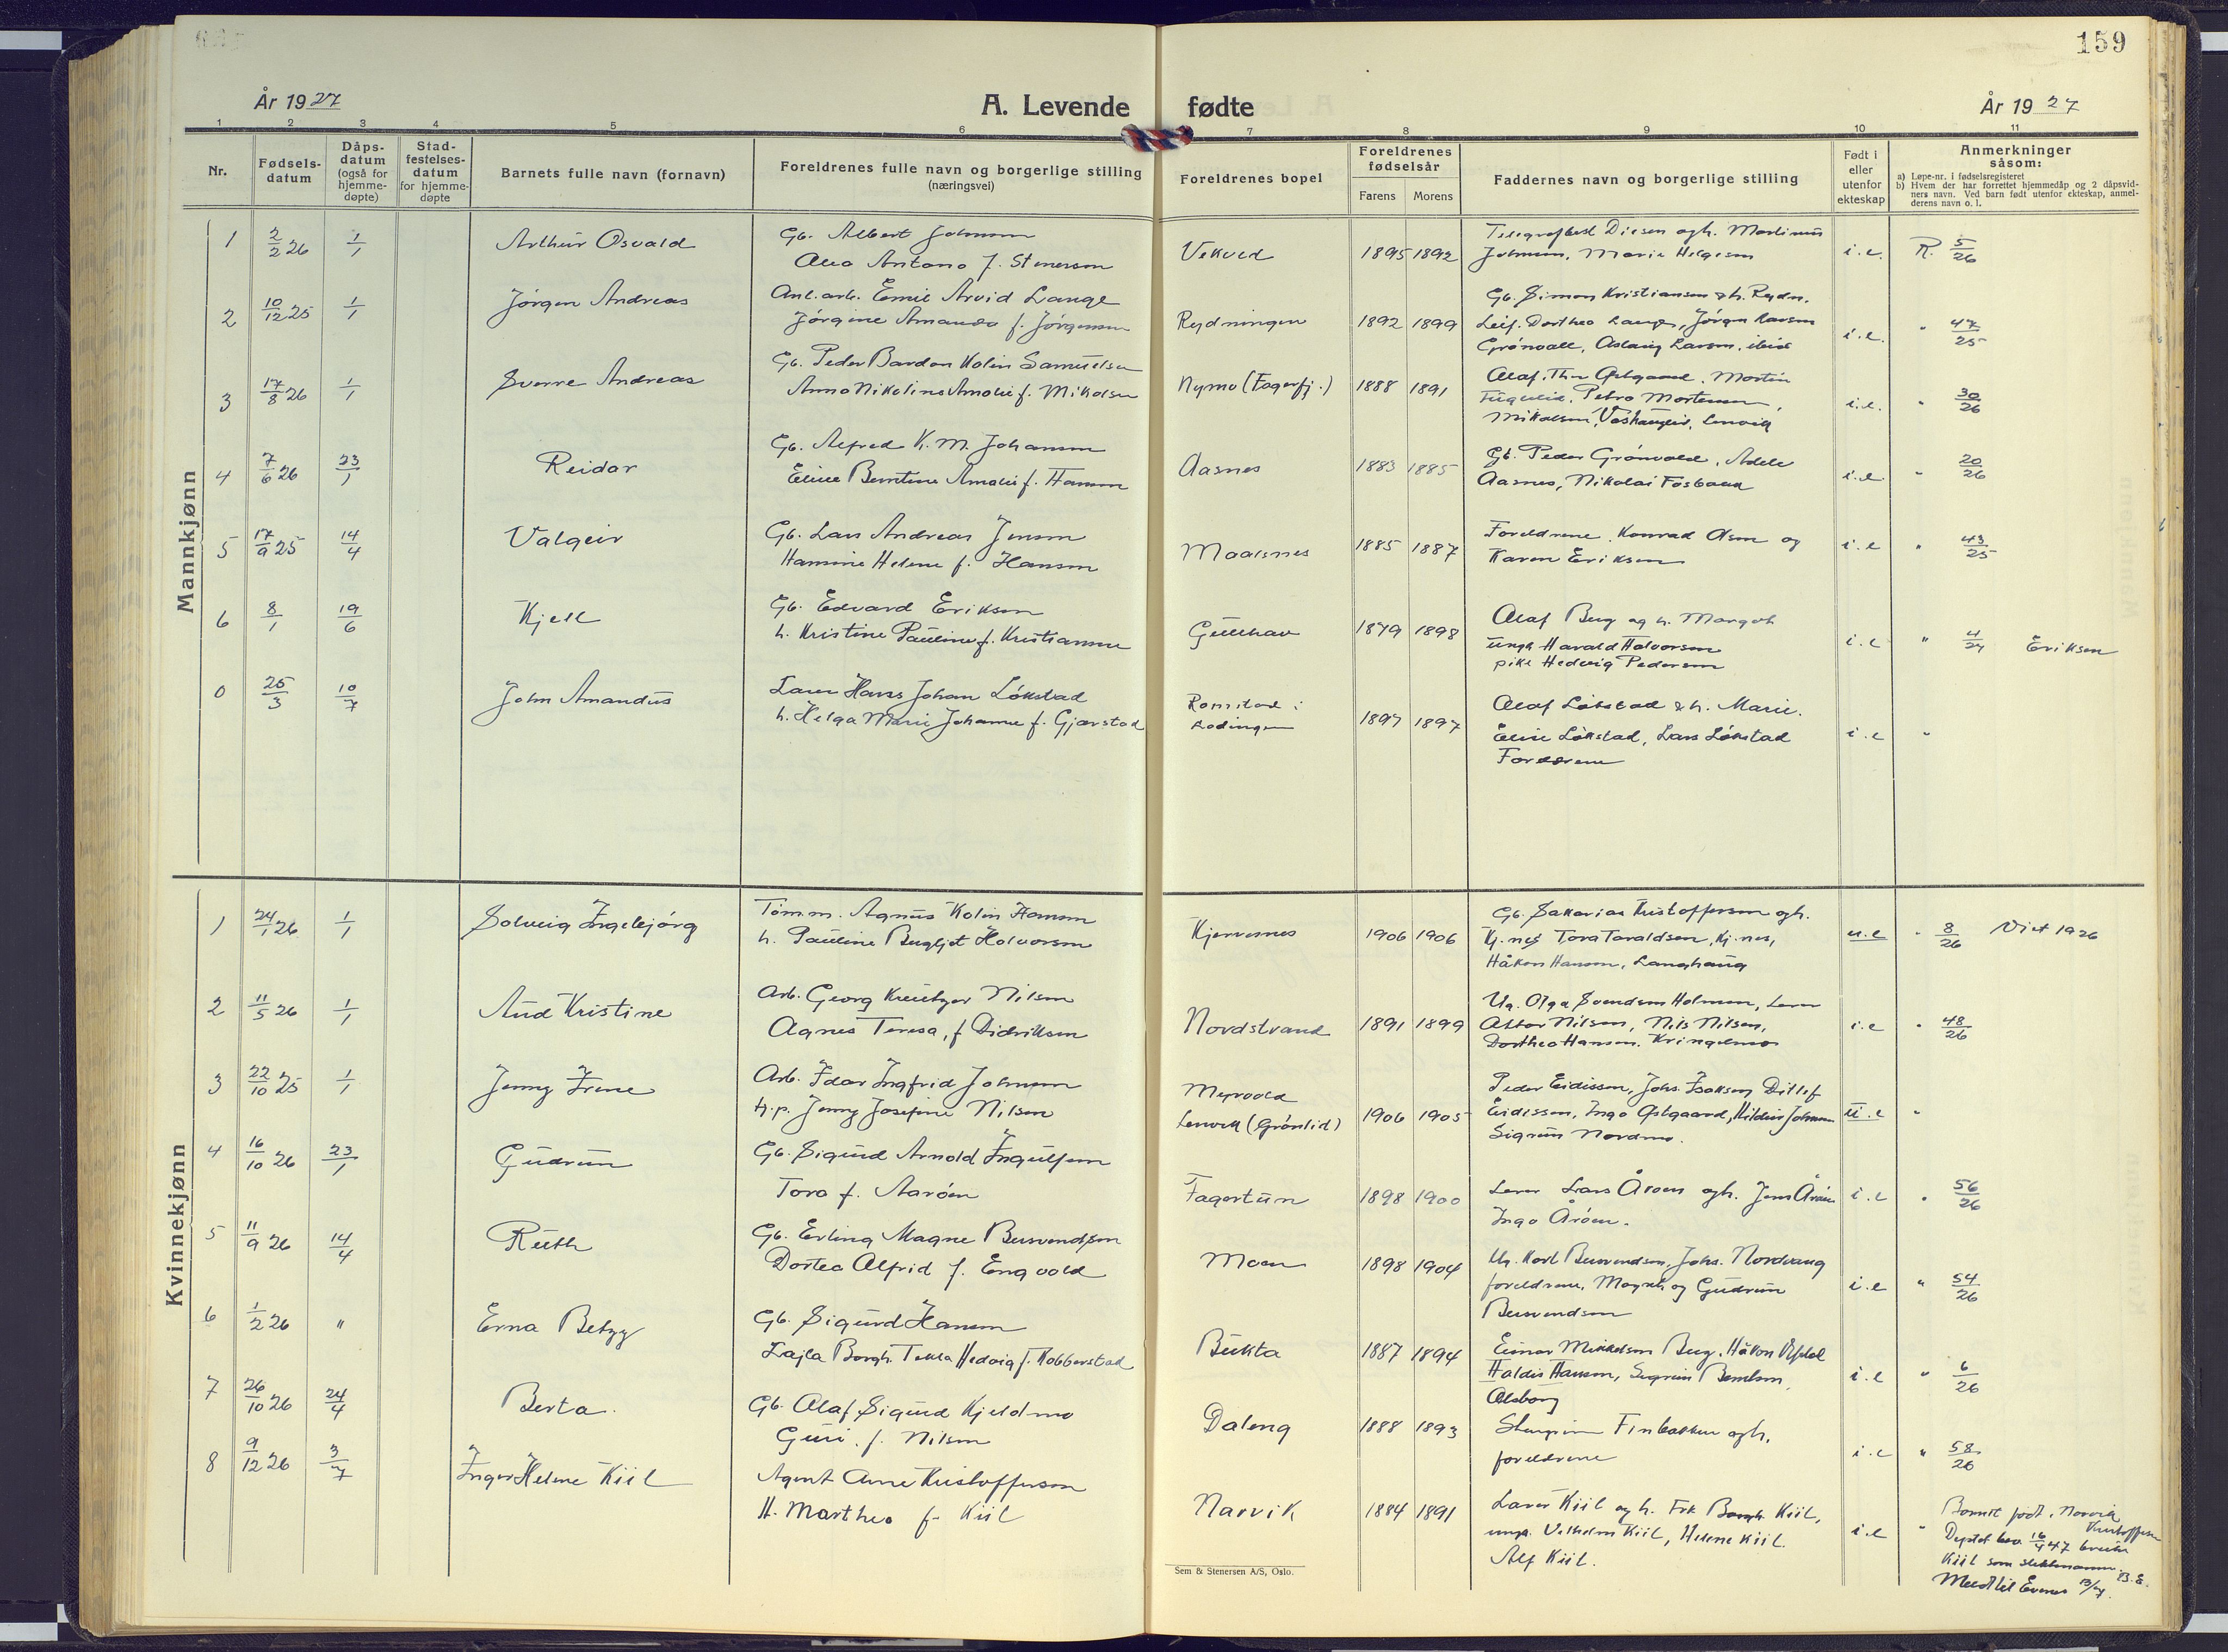 159
År 1927
A. Levende fødte
År 1927
1 2 3 4 5 6 7 8 9 10 11
Nr.
Fødsels-
datum
Dåps-
datum
(også for
hjemme-
døpte)
Stad-
festelses-
datum
for hjemme-
døpte
Barnets fulle navn (fornavn)
Foreldrenes fulle navn og borgerlige stilling
(næringsvei)
Foreldrenes bopel
Foreldrenes
fødselsår
Farens Morens
Faddernes navn og borgerlige stilling
Født i
eller
utenfor
ekteskap
Anmerkninger
såsom:
a) Løpe-nr. i fødselsregisteret
b) Hvem der har forrettet hjemmedåp og 2 dåpsvid-
ners navn. Ved barn født utenfor ekteskap, anmel-
derens navn o. l.
Mannkjønn
1 2/2 26 1/1 Arthur Osvald Gb. Albert Johnsen
Antona f. Stenersen
1895 1892
Johnsen, Marie Helgesen i.e. R. 5/26
2 10/12 25 1/1 Jørgen Andreas Anl.arb. Emil Arvid Lange
Jørgine Amanda f. Jørgensen
Rydningen 1892 1899
Gb. Simon Kristiansen & h. Rydn.
Leif, Dorthea Lange, Jørgen Larsen
Grønvoll, Aslaug Larsen, ibid i.e. " 47/25
3 17/8 26 1/1 Sverre Andreas Gb. Peder Bardon Kolin Samuelsen
Anna Nikoline Amalie f. Mikalsen
Nymo (Fagerfj.) 1888 1891
Olaf, Thea Østgaard, Martin
Petra Mortensen,
Mikalsen, Lenvig i.e. " 30/26
4 7/6 26 23/1 Reidar Gb. Alfred K. M. Johansen
Eline Berntine Amalie f. Hansen
Aasnes 1883 1885
Gb. Peder Grønvold, Adele
Aasnes, Nikolai Fosbakk i.e. " 20/26
5 17/9 25 14/4 Valgeir Gb. Lars Andreas Jensen
Hansine Helene f. Hansen
Maalsnes 1885 1887
Foreldrene, Konrad Olsen og
Karen Eriksen i.e " 43/25
6 8/1 19/6 Kjell Gb. Edvard Eriksen
h. Kristine Pauline f. Kristiansen
Gullhav 1879 1898
Olaf Berg og h. Margot
ungk Harald Halvorsen
pike Hedvig Pedersen i.e " 4/27 Eriksen
0 25/3 10/7 John Amandus Lærer Hans Johan Løkstad
h. Helga Marie Johanne f. Gjærstad
Romstad i
Lødingen 1897 1897
Olaf Løkstad & h. Marie.
Elise Løkstad, Lars Løkstad
Foreldrene i.e "
Kvinnekjønn
1 24/1 26 1/1 Solveig Ingebjørg Tømm. Agnus Kolin Hansen
h. Pauline Bergljot Halvorsen
Kjervesnes 1906 1906
Gb. Sakarias Kristoffersen og h.
Kj.nes Tora Taraldsen, Kj.nes,
Håkon Hansen, Langhaug u.e " 8/26 Viet 1926
2 11/5 26 1/1 Aud Kristine Arb. Georg Kreutzer Nilsen
Agnes Teresa, f Didriksen
Nordstrand 1891 1899
Ug. Olga Svendsen Holmen, Lærer
Nilsen, Nils Nilsen,
Dorthea Hansen, Kringelmo i.e " 48/26
3 22/10 25 1/1 Jenny Irene Arb. Idar Ingfrid Johnsen
tj.p. Jenny Josefine Nilsen
Myrvold
Lenvik (Grønlid) 1906 1905
Peder Eidissen, Johs. Isaksen, Ditlef
Eidissen, Inga Østgaard, Hildur Johnsen
Sigrun Nordmo. u.e "
4 16/10 26 23/1 Gudrun Gb. Sigurd Arnold Ingulfsen
Tora f. Aarøen
Fagertun 1898 1900
Lærer Lars Årøen og h. Jens Årøen
Inga Årøen. i.e " 56/26
5 11/9 26 14/4 Ruth Gb. Erling Magne Bersvendsen
Dortea Alfrid f. Engvold
Moen 1898 1904
Ug. Karl Bersvendsen, Johs. Nordvang
foreldrene, og Gudrun
Bersvendsen i.e " 54/26
6 1/2 26 " Erna Betzy Gb. Sigurd Hansen
Lajla Borgh. Tekla Hedvig f. Kobberstad
Bukta 1887 1894
Einar Mikkelsen Berg, Håkon
Haldis Hansen, Sigrun
i.e " 6/26
7 26/10 26 24/4 Berta. Gb. Olaf Sigurd Kjeldmo
Guri f. Nilsen
Daleng 1888 1893
Finbakken og h.
foreldrene i.e " 58/26
8 9/12 26 3/7 Inger Helene Kiil Agent Arne Kristoffersen
H. Marthea f. Kiil
Narvik 1884 1891
Lærer Kiil og h. Frk Borgh. Kiil,
ungk. Vilhelm Kiil, Helene Kiil.
Alf Kiil. i.e "
Barnet født i Narvik
Kristoffersen
16/4 47
Kiil som slektsnavn. B.E.
Meldt til Evenes
Sem & Stenersen A/S, Oslo.